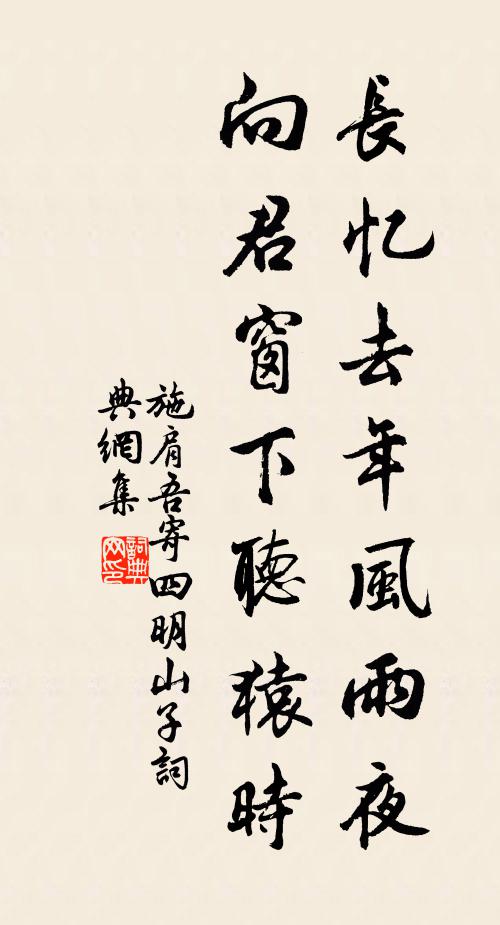 長忆去年風雨夜
向君窗下聽猿時
施肩吾寄四明山子詞
典網集
詞典
网印